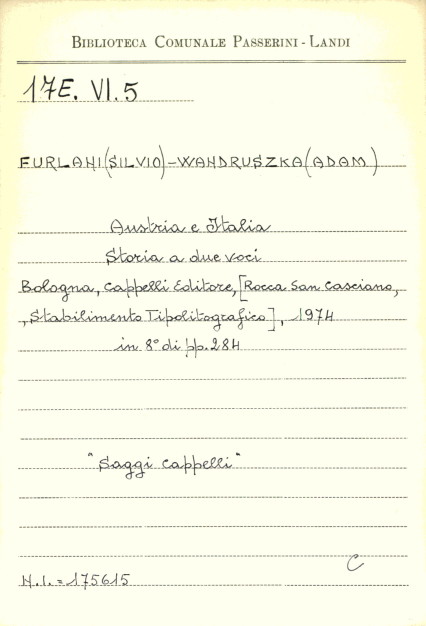 BIBLIOTECA COMUNALE PASSERINI - LANDI
17E. VI. 5
FURLANI (SILVIO) - WANDRUSZKA (ADAM)
Austria e Italia
Storia a due voci
Bologna, Cappelli Editore, [Rocca San Casciano,
Stabilimento Tipolitografico], 1974
in 8° di pp. 284
"Saggi Cappelli"
C
N.I. = 175615